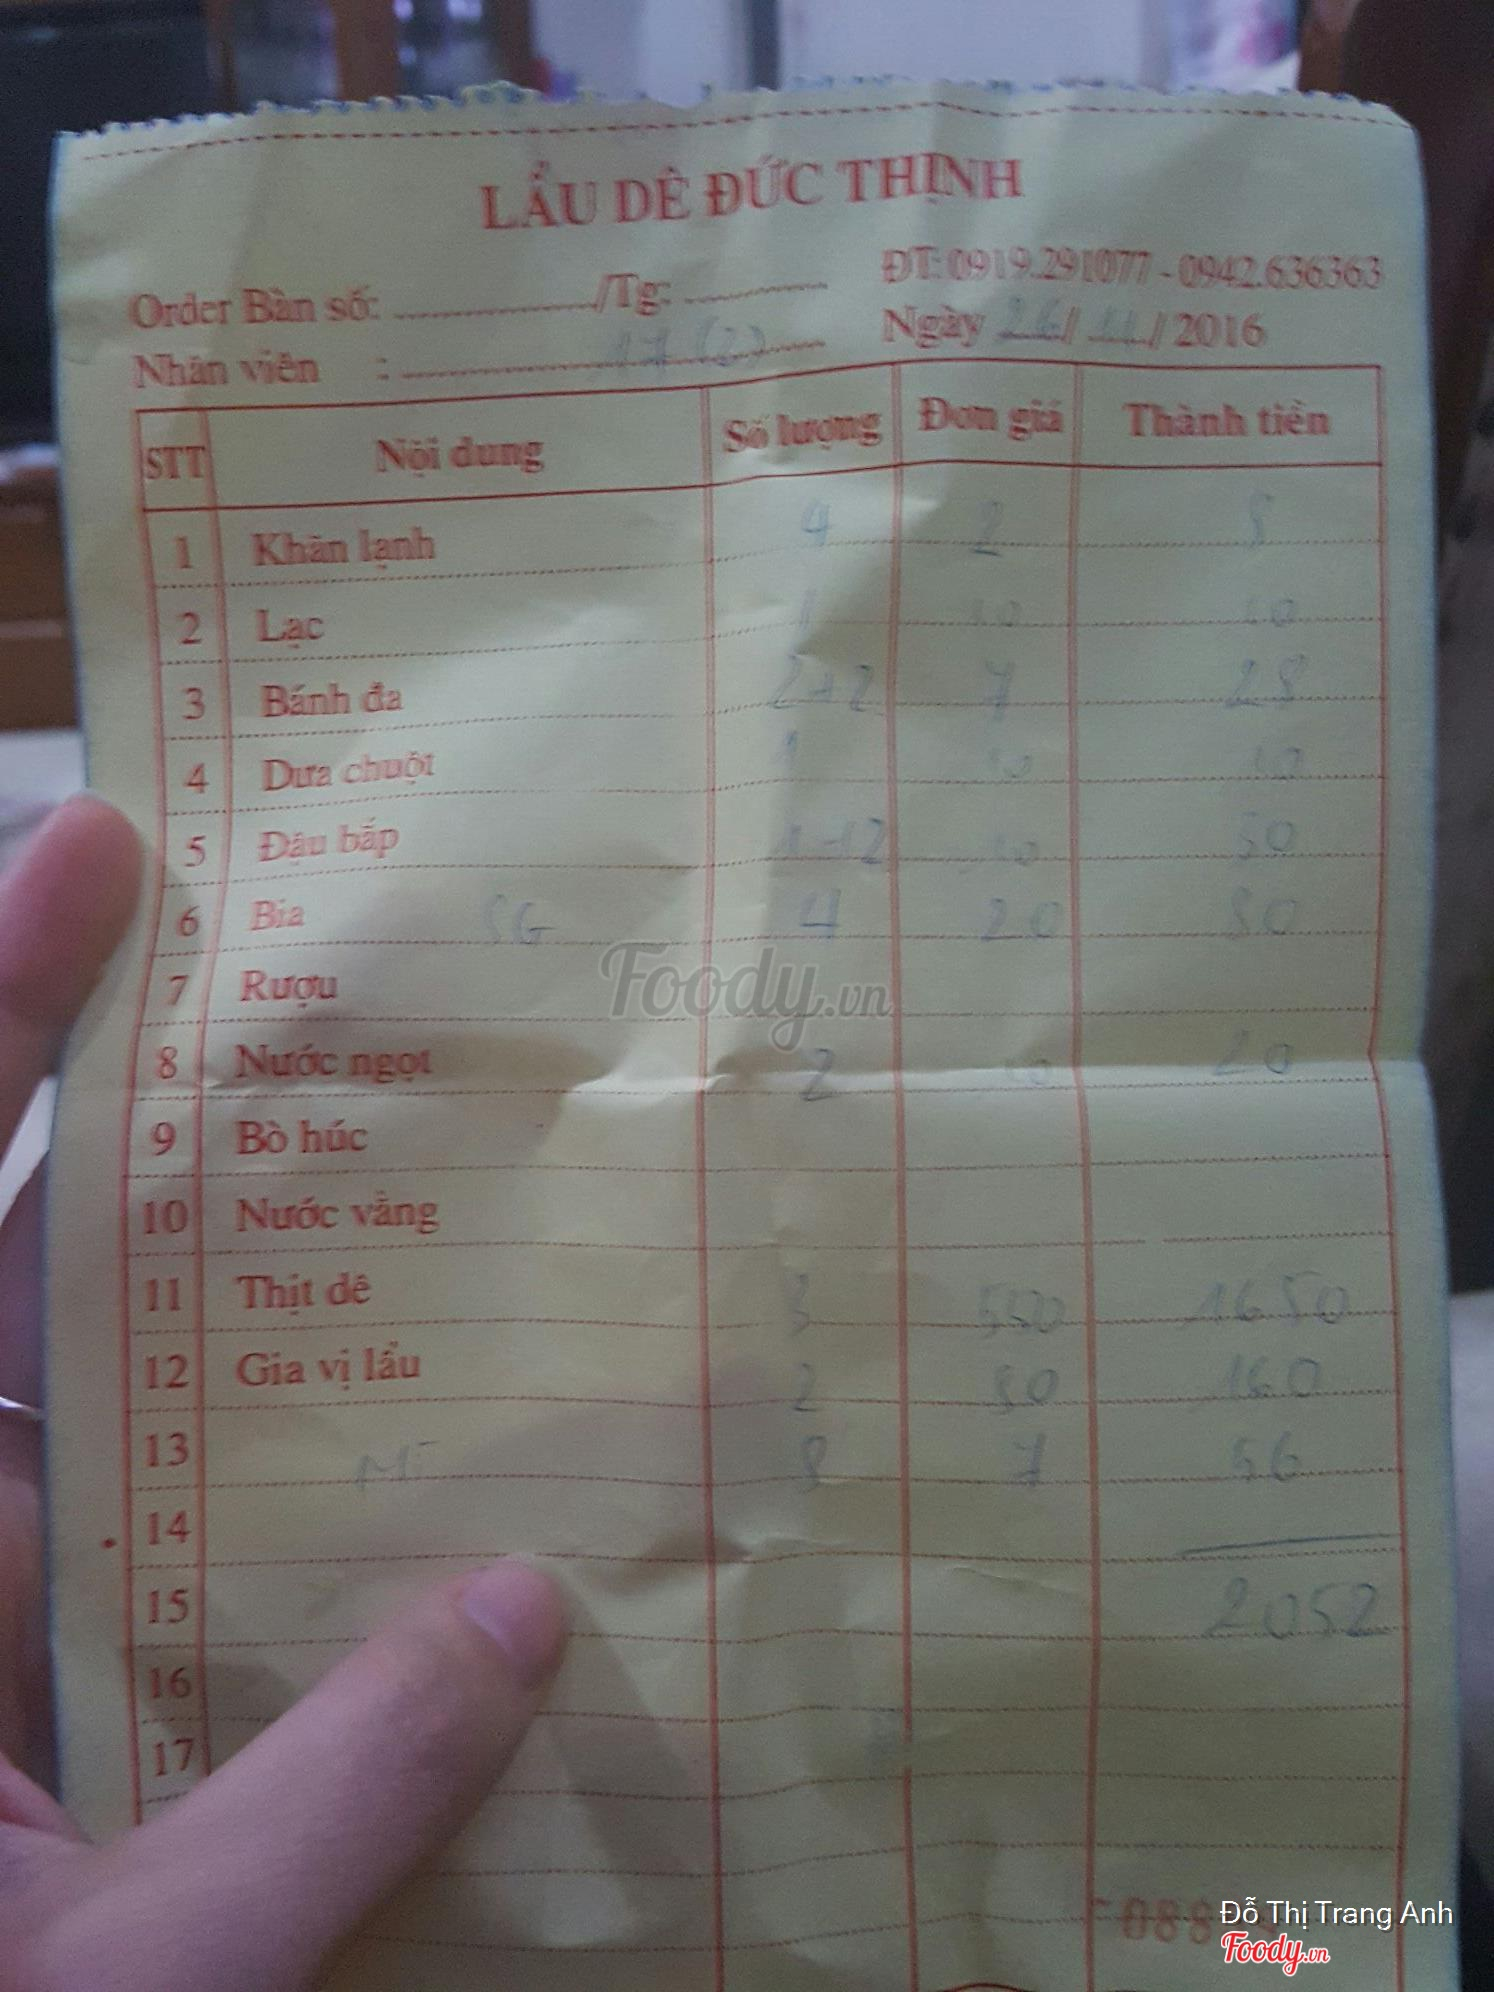 LẨU DÊ ĐỨC THỊNH
ĐT: 0919.291077 - 0942.636363
Order Bàn số: ............/Tg: ............
Ngày 26/ 11/ 2016
Nhân viên : ............ 17 (2)
STT Nội dung Số lượng Đơn giá Thành tiền
1 Khăn lạnh 4 2 8
2 Lạc 1 10 10
3 Bánh đa 2+2 7 28
4 Dưa chuột 1 10 10
5 Đậu bắp 10
6 Bia SG 4 20 80
7 Rượu
8 Nước ngọt 2 10 20
9 Bò húc
10 Nước vắng
11 Thịt dê 3 550 1650
12 Gia vị lẩu 2 80 160
13 Mì 8 7 56
14
15 2052
16
17
Foody.vn
Đỗ Thị Trang Anh
Foody.vn